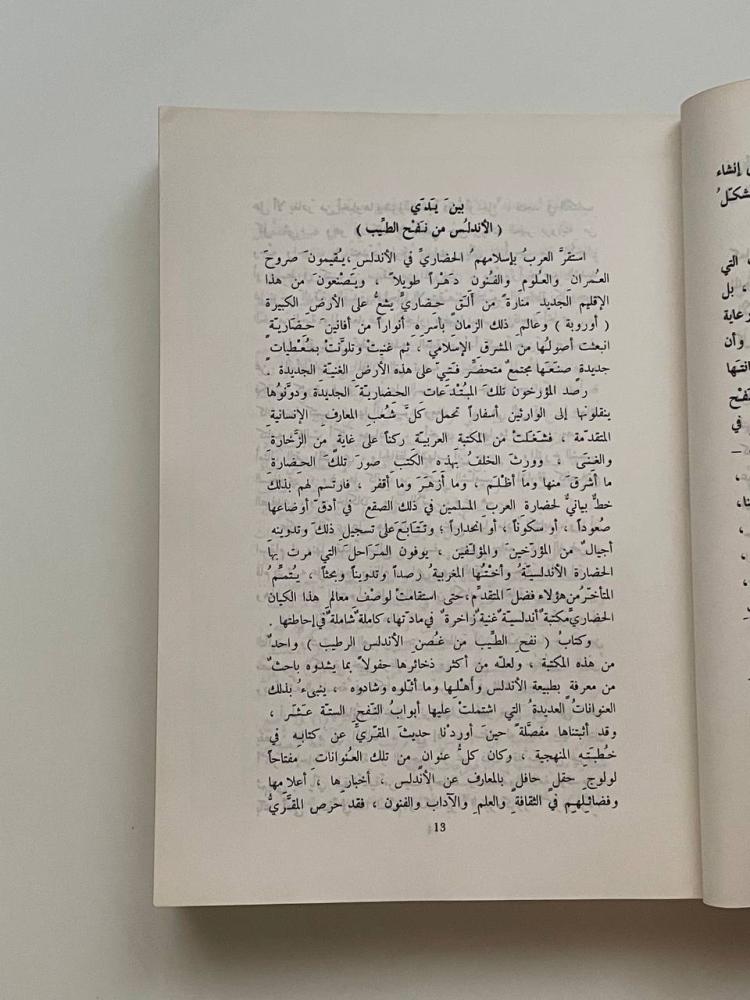 بينَ يَدَي
( الأندلُس من نَفْح الطِّيب )
استقرَّ العربُ بإسلامهمُ الحضاريِّ في الأندلسِ ، يُقيمونَ صروحَ
العُمرانِ والعُلومِ والفُنون دَهْراً طويلاً ، ويَصْنعونَ من هذا
الإقليم الجديدِ منارةً من أَلَقٍ حضاريٍّ يشعُّ على الأرضِ الكبيرة
( أوروبة ) وعالمِ ذلك الزمانِ بأسرِهِ أنواراً من أفانينَ حَضَاريّةٍ
انبعثت أصولُها من المشرقِ الإسلاميّ ، ثم غنيتْ وتلوَّنتْ بمُعْطياتٍ
جديدة صنَعَها مجتمعٌ متحضِّر فَتيّ على هذه الأرضِ الغنيّةِ الجديدة .
رصَد المؤرخون تلكَ المبُتْدَعاتِ الحِضاريّةَ الجديدةَ ودوَّنُوها
ينقلونها إلى الوارثين أسفاراً تحمل كلَّ شُعبِ المعارفِ الإنسانيةِ
المتقدّمة ، فشغلتْ من المكتبةِ العربيّةِ ركناً على غايةٍ من الزَّخارةِ
والغنى ، وورِثَ الخلفُ بهذه الكتبِ صورَ تلكَ الحِضارةِ
ما أشرقَ منها وما أظْلَم ، وما أزهرَ وما أقفر ، فارتسم لهم بذلك
خطٌّ بيانيٌّ لحضارة العربِ المسلمين في ذلك الصقعِ في أدقِّ أوضاعها
صُعوداً ، أو سكوناً ، أو انحداراً ؛ وتتابَع على تسجيل ذلكَ وتدوينه
أجيالٌ من المؤرّخينَ والمؤلّفين ، يوفون المَراحلَ التي مرت بها
الحضارة الأندلسيّةُ وأختُها المغربيةُ رصداً وتدويناً وبحثاً ، يُتمِّمُ
المتأخّرُ من هؤلاء فضلَ المتقدّمِ ، حتى استقامتْ لوصْف معالمِ هذا الكيان
الحضاريّ مكتبةٌ أندلسيّةٌ غنيةٌ زاخرةٌ في مادتها ، كاملةٌ شاملةٌ في إحاطتها .
وكتابُ ( نفح الطِّيب من غُصن الأندلس الرطيب ) واحدٌ
من هذه المكتبة ، ولعلّه من أكثر ذخائرها حفولاً بما يشدوه باحثٌ
من معرفة بطبيعة الأندلس وأهْلِها وما أثّلوه وشادوه ، ينبىءُ بذلك
العنوانات العديدةُ التي اشتملتْ عليها أبوابُ النّفحِ الستّة عَشَر ،
وقد أثبتناها مفصَّلةً حينَ أوردْنا حديثَ المقّريّ عن كتابِهِ في
خُطبَتِهِ المنهجية ، وكان كلُّ عنوان من تلك العُنوانات مفتاحاً
لولوجِ حقلٍ حافلٍ بالمعارف عن الأندلس ، أخبارِها ، أعلامِها
وفضائلِهم في الثقافةِ والعلمِ والآدابِ والفنون ، فقد حرص المقَّريُّ
13
إنشاء
التي
، بل
رعاية
وأن
في